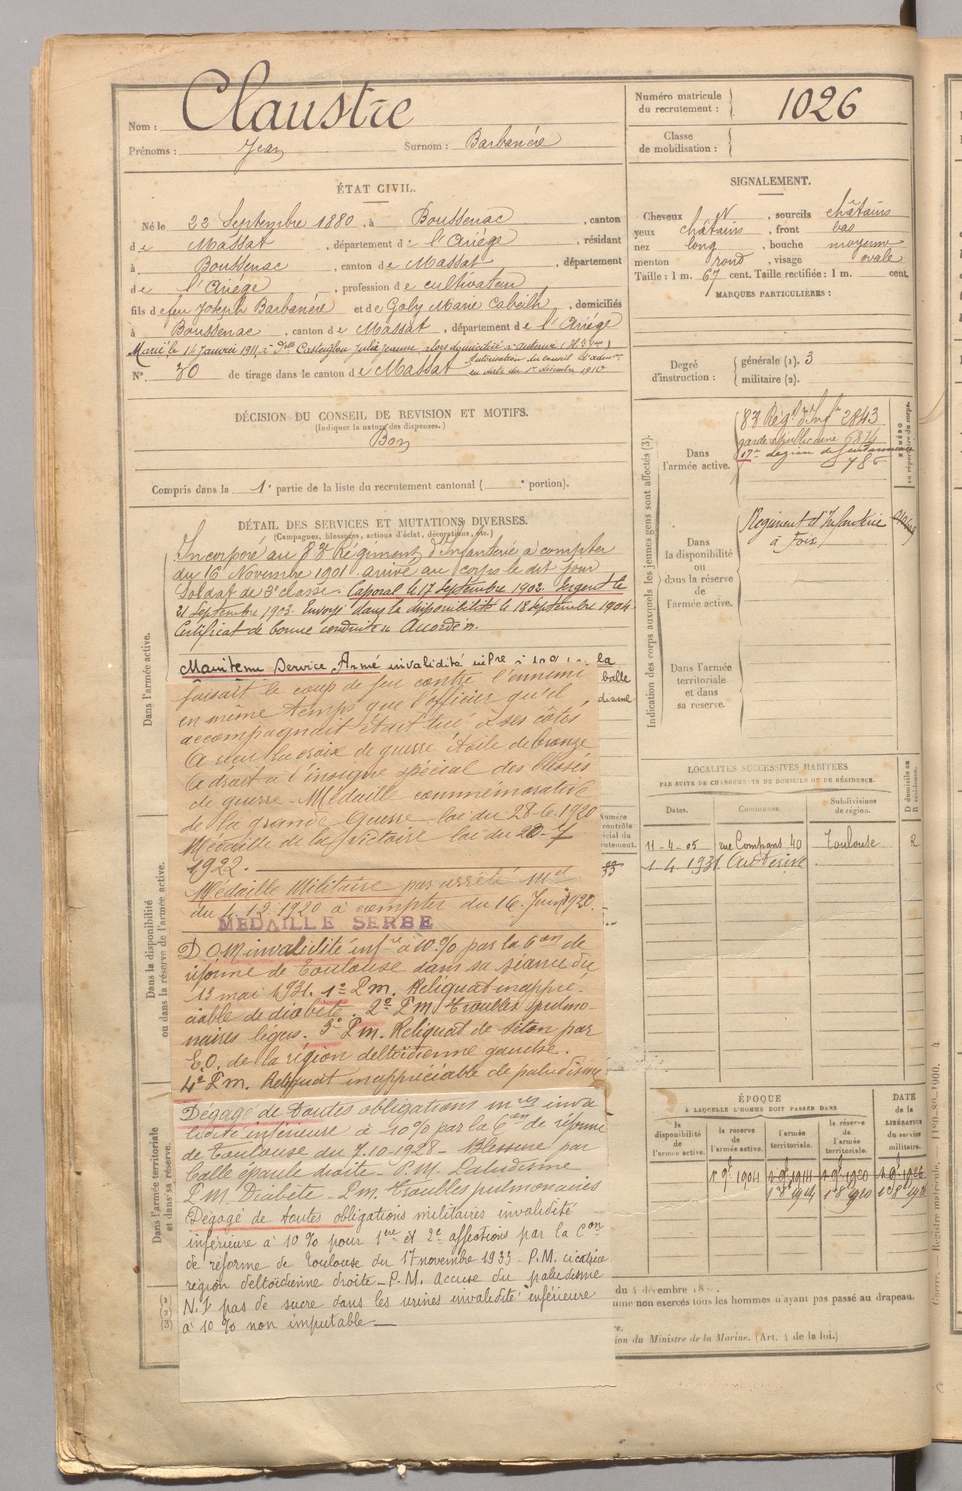 Nom : Claustre
Prénoms : Jean Surnom : Barbanère
Numéro matricule du recrutement : 1026
Classe de mobilisation :
ÉTAT CIVIL.
Né le 22 Septembre 1880, à Boussenac, canton
de Massat, département de l'Ariège, résidant
à Boussenac, canton de Massat, département
de l'Ariège, profession de cultivateur
fils de feu Joseph Barbanère et de Galy Marie Cabeilh, domiciliés
à Boussenac, canton de Massat, département de l'Ariège
Marié le 14 Janvier 1911, à Dlle Julie Jeanne, alors domiciliée à Auterive
Autorisation du Conseil d'adm
en date du 1er décembre 1910
N° 30 de tirage dans le canton de Massat
SIGNALEMENT.
Cheveux N, sourcils châtains
yeux châtains, front bas
nez long, bouche moyenne
menton rond, visage ovale
Taille : 1 m. 67 cent. Taille rectifiée : 1 m. cent.
MARQUES PARTICULIÈRES :
Degré d'instruction : générale (1). 3
militaire (2).
DÉCISION DU CONSEIL DE REVISION ET MOTIFS.
(Indiquer la nature des dispenses.)
Bon
Compris dans la 1e partie de la liste du recrutement cantonal ( e portion).
DÉTAIL DES SERVICES ET MUTATIONS DIVERSES.
(Campagnes, blessures, actions d'éclat, décorations, etc.)
Dans l'armée active.
Incorporé au 83e Régiment d'Infanterie à compter
du 16 Novembre 1901 arrivé au corps le dit jour
Soldat de 2e classe. Caporal le 17 Septembre 1902. Sergent le
21 Septembre 1903. Envoyé dans la disponibilité le 18 Septembre 1904
Certificat de bonne conduite Accordé.
Maintenu Service Armé invalidité
la
balle
faisait le coup de feu contre l'ennemi
en même temps que l'officier qu'il
accompagnait était tué à ses côtés
A reçu la croix de guerre étoile de bronze
A droit à l'insigne spécial des blessés
de guerre - Médaille commémorative
de la grande Guerre loi du 28-6-1920
Médaille de la Victoire loi du 20-7
1922.
Médaille Militaire par arrêté mel
du 4.12.1920 à compter du 16 Juin 1920.
MEDAILLE SERBE
D.O.M invalidité infre à 10% par la Con de
réforme de Toulouse dans sa séance du
13 mai 1931. 1° P.m. Reliquat inappré-
ciable de diabète. 2° P.m troubles pulmo-
naires légers. 3° P.m. Reliquat de séton par
E.O. de la région deltoïdienne gauche.
4° P.m. Reliquat inappréciable de paludisme
Dégagé de toutes obligations mres inva
lidité inférieure à 10% par la Con de réforme
de Toulouse du 7.10-1928 - Blessure par
balle épaule droite - P.M. Paludisme
P.M Diabète - P.m. troubles pulmonaires
Dégagé de toutes obligations militaires invalidité
inférieure à 10% pour 1re et 2e affections par la Con
de réforme de Toulouse du 17 novembre 1933 - P.M. cicatrice
région deltoïdienne droite - P.M. Accuse du paludisme
N.1 pas de sucre dans les urines invalidité inférieure
à 10% non imputable
Dans la disponibilité ou dans la réserve de l'armée active.
Dans l'armée territoriale et dans sa réserve.
(1)
(2)
(3)
Indication des corps auxquels les jeunes gens sont affectés (3).
Dans l'armée active.
83 Régt d'Infie 2843
garde républicaine 6874
17e Légion de Gendarmerie
785
Dans la disponibilité ou dans la réserve de l'armée active.
Régiment d'Infanterie
à Foix
Dans l'armée territoriale et dans sa réserve.
LOCALITÉS SUCCESSIVES HABITÉES
PAR SUITE DE CHANGEMENTS DE DOMICILE OU DE RÉSIDENCE.
Dates. Communes. Subdivisions de région. D domicile ou R résidence.
11-4-05 rue Compans 40 Toulouse R
1-4-1931 Auterive
ÉPOQUE
À LAQUELLE L'HOMME DOIT PASSER DANS
la disponibilité de l'armée active.
la réserve de l'armée active.
l'armée territoriale.
la réserve de l'armée territoriale.
DATE de la LIBÉRATION du service militaire.
du 4 décembre
mme non exercés tous les hommes n'ayant pas passé au drapeau.
ion du Ministre de la Marine. (Art. 4 de la loi.)